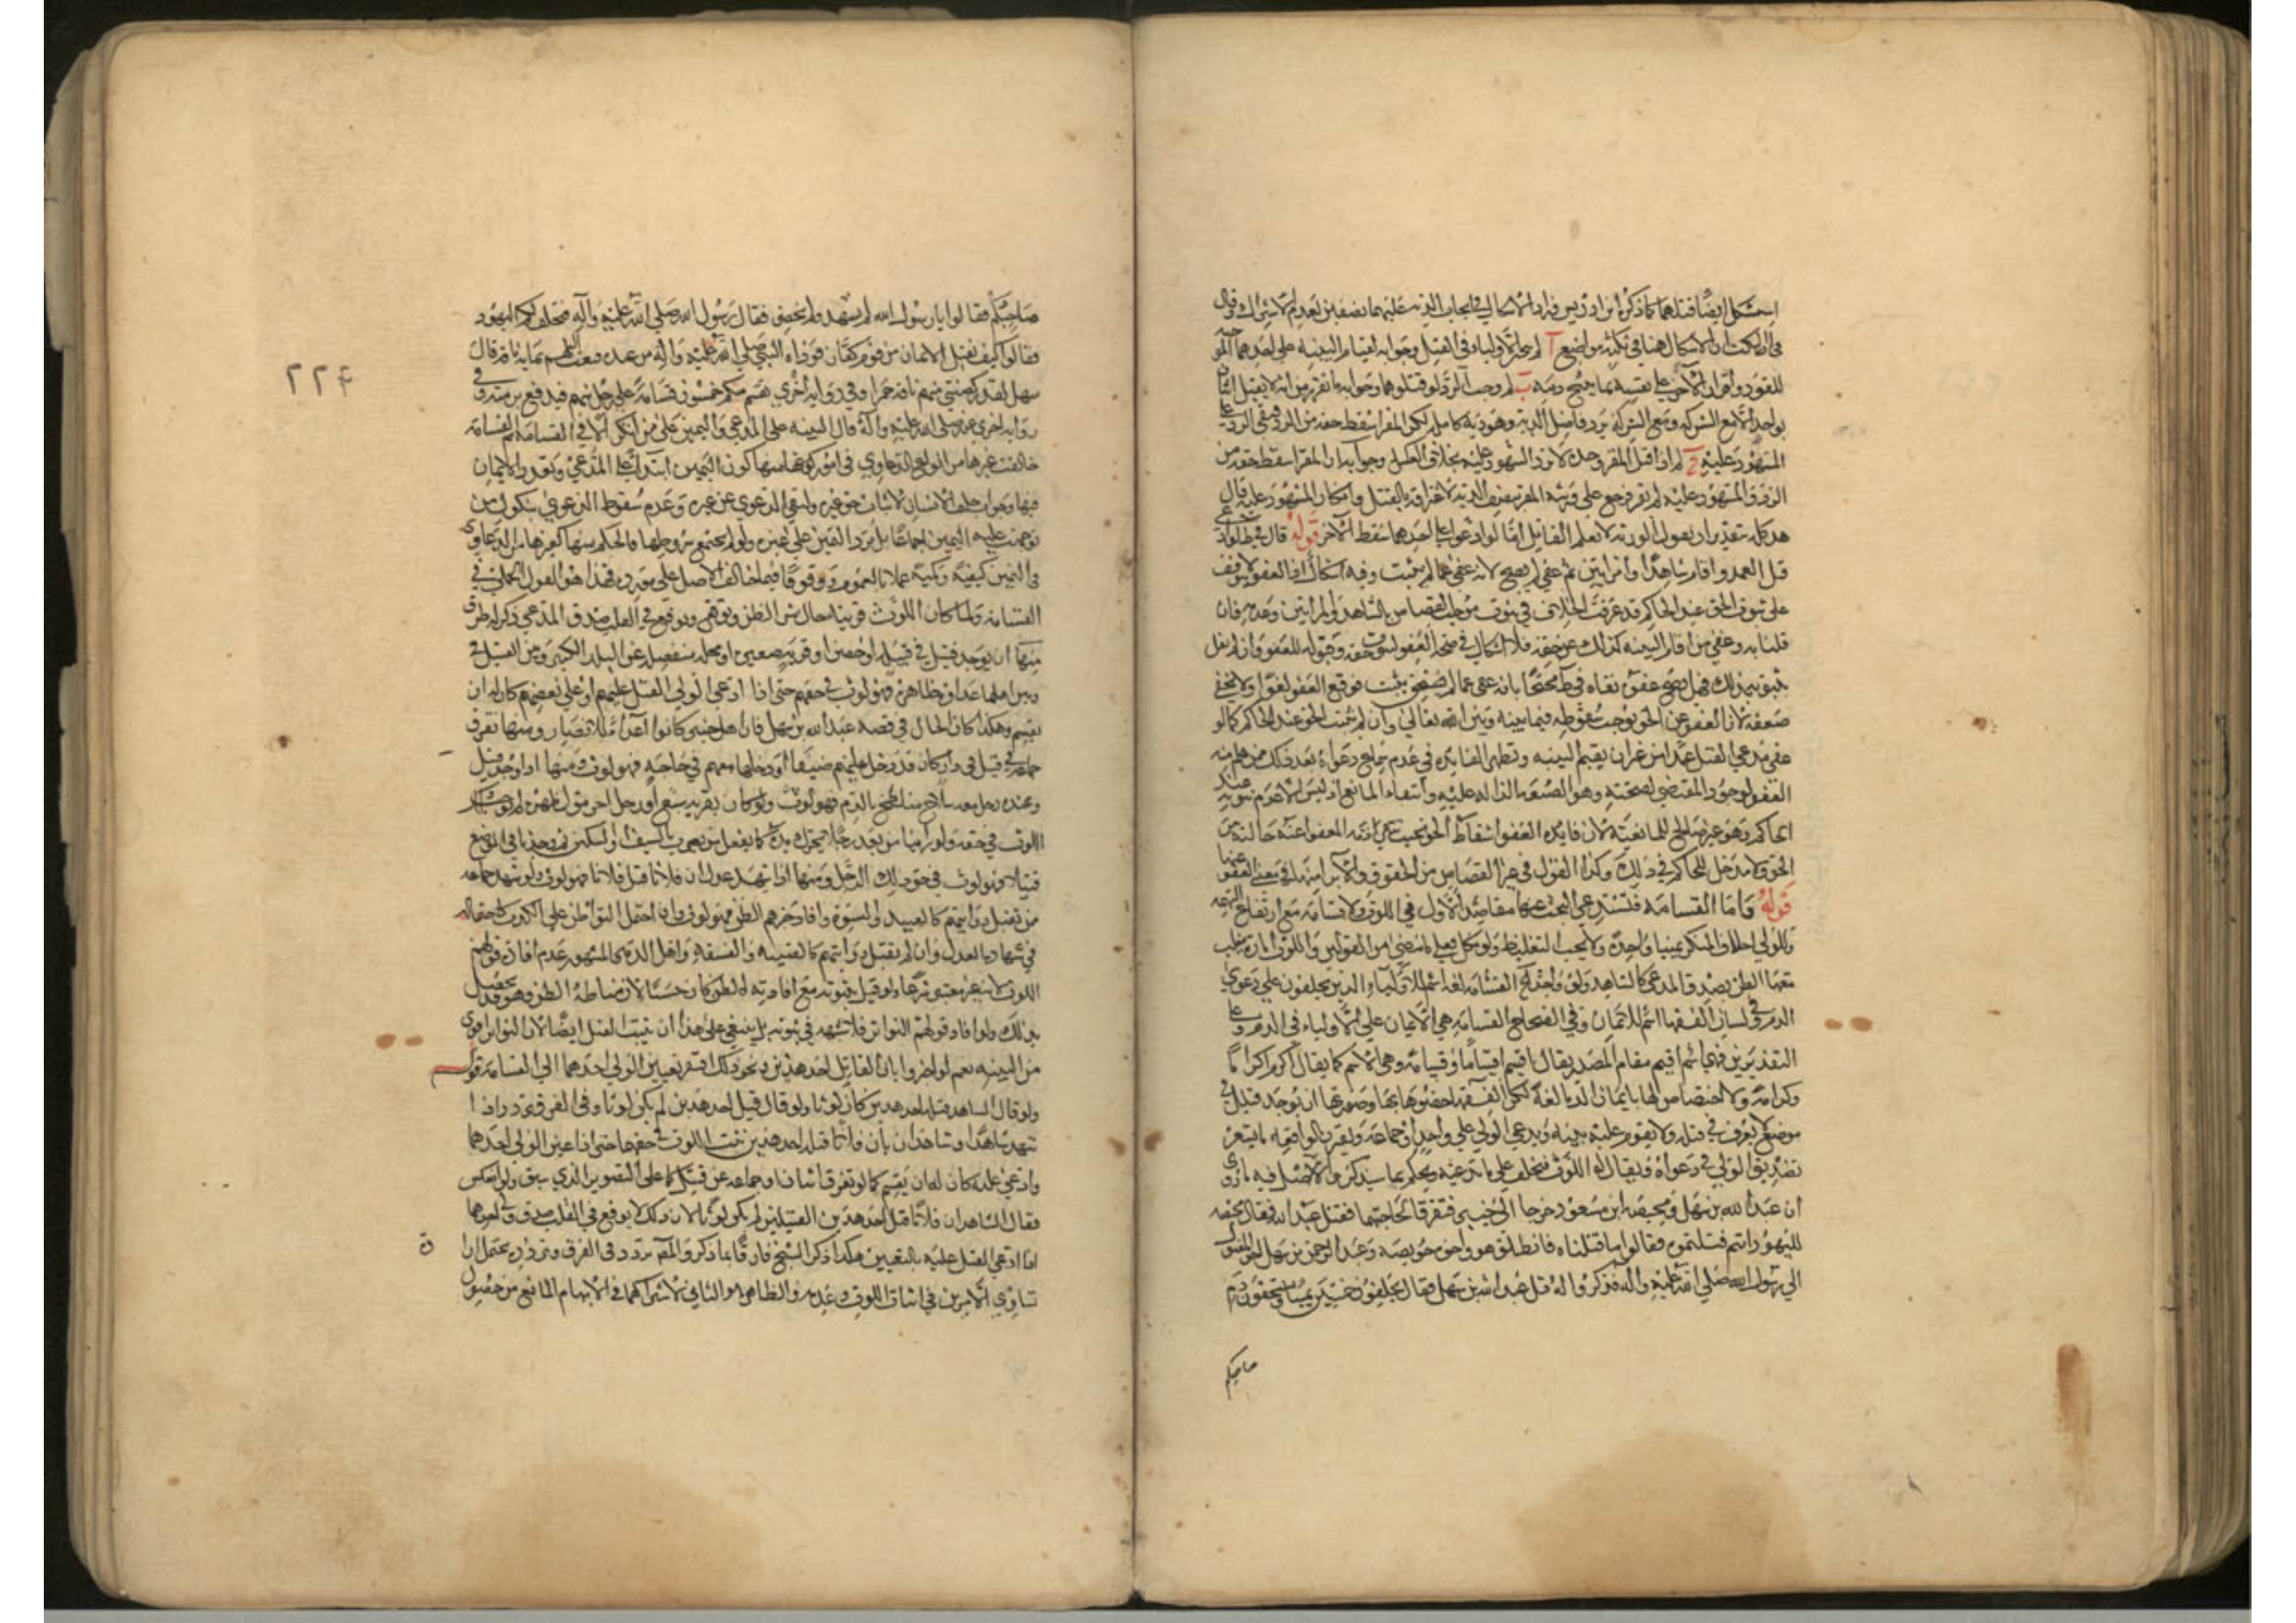 استشكل ايضا قتلهما كما ذكره ابن ادريس فزاد الاشكال في ايجاب الدية عليهما نصفين لعدم الاشتراك وقال
في النكت ان الاشكال هنا في ثلثة مواضع آ لم يتخير الاولياء في القتل وجوابه لقيام البينة على احدهما الموجبة
للقود واقرار الآخر على نفسه بما يبيح دمه ب لم وجب الرد لو قتلوهما وجوابه ما تقرر من انه لا يقتل اثنان
بواحد الا مع الشركة ومع الشركة يرد فاضل الدية وهو دية كاملة لكن المقر اسقط حقه من الرد فبقي الرد على
المشهود عليه ج لم اذا قتل المقر وحده لا يرد المشهود عليه بخلاف العكس وجوابه ان المقر اسقط حقه من
الرد والمشهود عليه لم يقر فرجع على ورثة المقر بنصف الدية لاعترافه بالقتل وانكار المشهود عليه قال
هذا كله بتقدير ان يقول الورثة لا نعلم القاتل اما لو ادعوا على احدهما سقط الآخر قوله قال في ط لو ادعى
قتل العمد واقام شاهدا وامراتين ثم عفى لم يصح لانه عفى عما لم يثبت وفيه اشكال اذ العفو لا يتوقف
على ثبوت الحق عند الحاكم قد عرفت الخلاف في ثبوت موجب القصاص بالشاهد والمراتين وعدمه فان
قلنا به وعفى من اقام البينة كذلك عن حقه فلا اشكال في صحة العفو لثبوت حقه وقبوله للعفو وان لم نقل
بثبوته بذلك فهل يصح عفوه نفاه في ط محتجا بانه عفى عما لم يثبت فوقع العفو لغوا ولا يخفى
ضعفه لان العفو عن الحق يوجب سقوطه فيما بينه وبين الله تعالى وان لم يثبت الحق عند الحاكم كما لو
عفى مدعي القتل عمدا من غير ان يقيم البينة وتظهر الفايدة في عدم سماع دعواه بعد ذلك
العفو لوجود المقتضي لصحته وانتفاء المانع اذ ليس الا عدم ثبوته عند
الحاكم وهو غير صالح للمانعية لان فايدة العفو اسقاط الحق بحيث
الحق ولا مدخل للحاكم في ذلك وكذا القول في غير القصاص من الحقوق والابراء
قوله واما القسامة فتستدعي البحث عن مقاصد الاول في اللوث ولا قسامة مع ارتفاع التهمة
وللولي احلاف المنكر يمينا واحدة ولا يجب التغليظ ولو نكل فعلى ما مضى من القولين واللوث امارة يغلب
معها الظن بصدق المدعي كالشاهد ولو واحدا القسامة لغة اسم للاولياء الذين يحلفون على دعوى
الدم وفي لسان الفقهاء اسم للايمان وفي الصحاح القسامة هي الايمان على الاولياء في الدم وعلى
التقديرين فهي اسم اقيم مقام المصدر يقال اقسم اقساما وقسامة وهي الاسم كما يقال اكرم اكراما
وكرامة ولا اختصاص لها بايمان الدماء لغة لكن الفقهاء خصوها بها وصورتها ان يوجد قتيل في
موضع لا يعرف من قتله ولا يقوم عليه بينة ويدعي الولي على واحد او جماعة ويقترن بالواقعة ما يشعر
بصدق الولي في دعواه ويقال له اللوث فيحلف على ما يدعيه ويحكم بما سيذكر والاصل فيه ما روي
ان عبد الله بن سهل ومحيصة ابن مسعود خرجا الى خيبر فتفرقا لحاجتهما فقتل عبد الله فقال محيصة
لليهود انتم قتلتموه فقالوا ما قتلناه فانطلق هو واخوه حويصة وعبد الرحمن بن سهل اخو المقتول
الى رسول الله صلى الله عليه وآله فذكروا له قتل عبد الله بن سهل فقال تحلفون خمسين يمينا وتستحقون دم
صاحبكم
صاحبكم فقالوا يا رسول الله لم نشهد ولم نحضر فقال رسول الله صلى الله عليه وآله فتحلف لكم اليهود
فقالوا كيف نقبل الايمان من قوم كفار فوداه النبي صلى الله عليه وآله من عنده فبعث اليهم بماية ناقة قال
سهل لقد ركضتني منها ناقة حمراء وفي رواية اخرى يقسم منكم خمسون قسامة على رجل منهم فيدفع برمته وفي
رواية اخرى عنه صلى الله عليه وآله قال البينة على المدعي واليمين على من انكر الا في القسامة ثم القسامة
خالفت غيرها من انواع الدعاوي في امور كون اليمين ابتداء على المدعي وتعدد الايمان
فيها وجواز حلف الانسان لاثبات حق غيره ولنفي الدعوى عن غيره وعدم سقوط الدعوى بنكول من
توجهت عليه اليمين اجماعا بل يرد اليمين على غيره ولو لم يجتمع شروطها فالحكم فيها كغيرها من الدعاوي
في اليمين كيفية وكمية عملا بالعموم ووقوفا فيما خالف الاصل على مورده فهذا هو القول الجملي في
القسامة ولما كان اللوث قرينة حال تثير الظن وتوقع في القلب صدق المدعي ذكر له طرق
منها ان يوجد قتيل في قبيلة او حصن او قرية صغيرة او محلة منفصلة عن البلد الكبير وبين القتيل
وبين اهلها عداوة ظاهرة فهو لوث في حقهم حتى اذا ادعى الولي القتل عليهم او على بعضهم كان له ان
يقسم وهكذا كان الحال في قصة عبد الله بن سهل فان اهل خيبر كانوا اعداء للانصار ومنها تفرق
جماعة عن قتيل في دار كان قد دخل عليهم ضيفا او دخلها معهم في حاجة فهو لوث ومنها اذا وجد قتيل
وعنده رجل معه سلاح متلطخ بالدم فهو لوث ولو كان بقربه سبع او رجل آخر مول ظهره لم يوجب ذلك
اللوث في حقه ولو راينا من بعد رجلا يحرك يده كما يفعل من يضرب بالسيف او السكين ثم وجدنا في الموضع
قتيلا فهو لوث في حق ذلك الرجل ومنها اذا شهد عدل ان فلانا قتل فلانا فهو لوث ولو شهد جماعة
من تقبل روايتهم كالعبيد والنسوة وافاد خبرهم الظن فهو لوث وان احتمل التواطؤ على الكذب كاحتماله
في شهادة العدل وان لم تقبل روايتهم كالصبية والفسقة واهل الذمة فالمشهور عدم افادة قولهم
اللوث لانه غير معتبر شرعا ولو قيل بثبوته مع افادته الظن كان حسنا لان مناطه الظن وهو قد يحصل
بذلك ولو افاد قولهم التواتر فلا شبهة في ثبوته بل ينبغي على هذا ان يثبت القتل ايضا لان التواتر اقوى
من البينة نعم لو اخبروا بان القاتل احد هذين ونحو ذلك افتقر تعيين الولي احدهما الى القسامة قوله
ولو قال الشاهد قتله احد هذين كان لوثا ولو قال قتل احد هذين لم يكن لوثا وفي الفرق تردد اذا
شهد شاهد او شاهدان بان فلانا قتله احد هذين ثبت اللوث في حقهما حتى اذا عين الولي احدهما
وادعى عليه كان له ان يقسم كما لو تفرق اثنان او جماعة عن قتيل كما على التصوير الذي سبق ولو انعكس
فقال الشاهدان فلانا قتل احد هذين القتيلين لم يكن لوثا لان ذلك لا يوقع في القلب صدق ولي احدهما
اذا ادعى القتل عليه بالتعيين هكذا ذكر الشيخ فارقا بما ذكر والمص تردد في الفرق وتردده يحتمل ارادة
تساوي الامرين في اثبات اللوث وعدمه والظاهر هو الثاني لاشتراكهما في الابهام المانع من حصول
٢٢٤